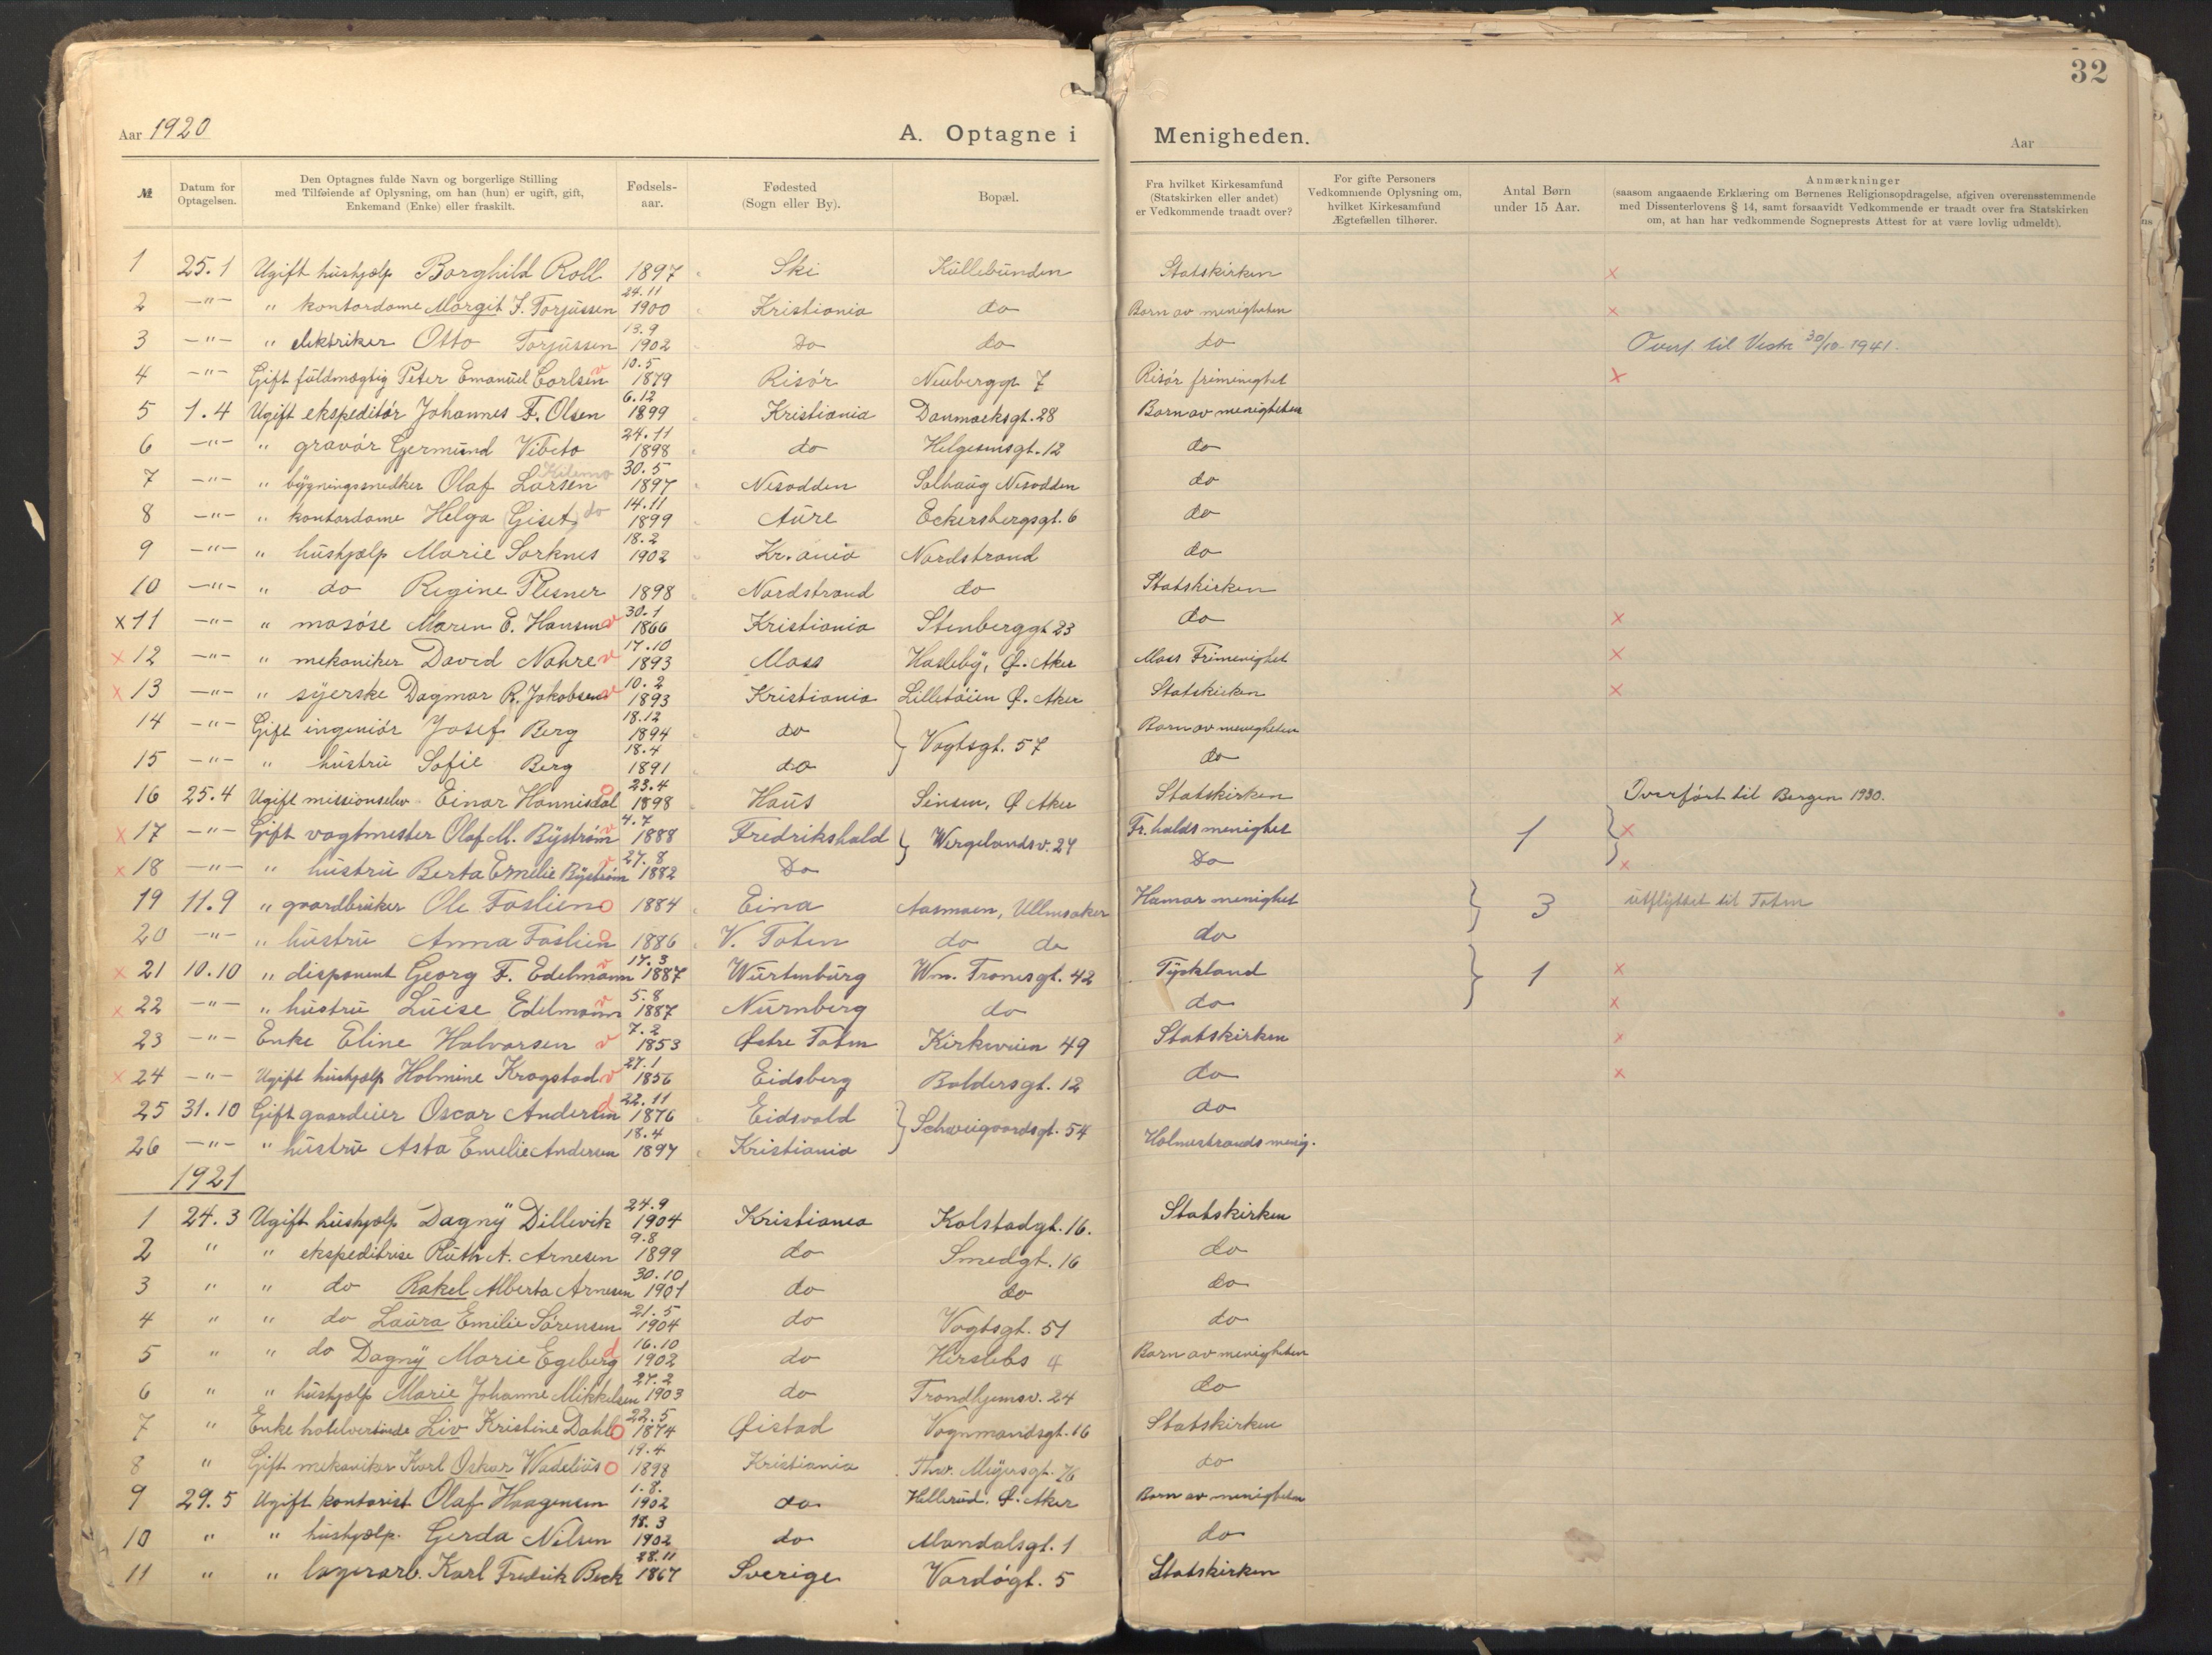 32
Aar 1920 A. Optagne i Menigheden. Aar
№ Datum for Optagelsen. Den Optagnes fulde Navn og borgerlige Stilling med Tilføiende af Oplysning, om han (hun) er ugift, gift, Enkemand (Enke) eller fraskilt. Fødsels-aar. Fødested (Sogn eller By). Bopæl. Fra hvilket Kirkesamfund (Statskirken eller andet) er Vedkommende traadt over? For gifte Personers Vedkommende Oplysning om, hvilket Kirkesamfund Ægtefællen tilhører. Antal Børn under 15 Aar. Anmærkninger (saasom angaaende Erklæring om Børnenes Religionsopdragelse, afgiven overensstemmende med Dissenterlovens § 14, samt forsaavidt Vedkommende er traadt over fra Statskirken om, at han har vedkommende Sogneprests Attest for at være lovlig udmeldt).
1 25.1 Ugift hushjælp Borghild Roll 1897 Ski Kullebunden Statskirken x
2 -"- " kontordame Margit J. Torjussen 24.11 1900 Kristiania do Barn av menigheten x
3 -"- " elektriker Otto Torjussen 13.9 1902 Do do do Overf. til Vestre 30/10-1941.
4 -"- Gift fuldmægtig Peter Emanuel Carlsen v 10.5 1879 Risør Neubergg. 7 Risør frimenighet x
5 1.4 Ugift ekspeditør Johannes F. Olsen 6.12 1899 Kristiania Danmarksgt. 28 Barn av menigheten
6 -"- " gravør Germund Vibeto 24.11 1898 do Helgesensgt. 12 do
7 -"- " bygningssnedker Olaf Larsen 30.5 1897 Nesodden Solhaug Nesodden do
8 -"- " kontordame Helga Giset do 14.11 1899 Aure Eckersbergsgt. 6 do
9 -"- " hushjælp Marie Sorknes 18.2 1902 Kr.ania Nordstrand do
10 -"- " do Regine Plesner 1898 Nordstrand do Statskirken
x 11 -"- " masøse Maren E. Hansen v 30.1 1866 Kristiania Stenberggt 23 do x
x 12 -"- " mekaniker David Nohre v 17.10 1893 Moss Hasleby, Ø. Aker Moss Frimenighet x
x 13 -"- " syerske Dagmar R. Jakobsen v 10.2 1893 Kristiania Lilletøien Ø. Aker Statskirken x
14 -"- Gift ingeniør Josef Berg 18.12 1894 do } Vogtsgt. 57 Barn av menigheten
15 -"- " hustru Sofie Berg 18.4 1891 do do
16 25.4 Ugift missionselev Einar Hannisdal o 23.4 1898 Haus Sinsen, Ø Aker Statskirken Overført til Bergen 1930.
x 17 -"- Gift vagtmester Olaf M. Byström v 4.7 1888 Fredrikshald } Wergelandsv. 27 Fr.halds menighet 1 } x
x 18 -"- " hustru Berta Emelie Byström v 27.8 1882 Do Do x
19 11.9 " gaardbruker Ole Foslien o 1884 Eina Aasmoen, Ullensaker Hamar menighet } 3 utflyttet til Toten
20 -"- " hustru Anna Foslien o 1886 V. Toten do do do
x 21 10.10 " disponent Georg F. Edelmann v 17.3 1887 Würtenburg Wm. Tranesgt. 42 Tyskland } 1 x
x 22 -"- " hustru Luise Edelmann v 5.8 1887 Nürnberg do do x
23 -"- Enke Eline Halvorsen v 7.2 1853 Østre Toten Kirkeveien 49 Statskirken x
x 24 -"- Ugift hushjælp Holmine Krogstad v 27.1 1856 Eidsberg Baldersgt. 12 do x
25 31.10 Gift gaardeier Oscar Andersen d 22.11 1876 Eidsvold } Schweigaardsgt. 54 do
26 -"- " hustru Asta Emelie Andersen 18.4 1897 Kristiania Holmestrands menig.
1921
1 24.3 Ugift hushjælp Dagny Dillevik 24.9 1904 Kristiania Kolstadgt. 16. Statskirken
2 " " ekspeditrise Ruth A. Arnesen 9.8 1899 do Smedgt. 16 do
3 " " do Rakel Alberta Arnesen 30.10 1901 do do do
4 " " do Laura Emilie Sörensen 21.5 1904 do Vogtsgt. 51 do
5 " " do Dagny Marie Egeberg d 16.10 1902 do Herslebs 4 Barn av menigheten
6 " " hushjælp Marie Johanne Mikkelsen 27.2 1903 do Trondhjemsv. 24 do
7 " Enke hotelvertinde Liv Kristine Dahl o 22.5 1874 Øistad Vognmandsgt. 16 Statskirken
8 " Gift mekaniker Karl Oskar Wadelius o 19.4 1898 Kristiania Thv. Meyersgt. 76 do
9 29.5 Ugift kontorist Olaf Haagensen 1.8. 1902 do Hellerud. Ø. Aker Barn av menigheten
10 " " hushjælp. Gerda Nilsen 18.3 1902 do Mandalsgt. 1 do
11 " " lagerarb. Karl Fredrik Beck 28.11 1867 Sverige Vardøgt. 5 Statskirken